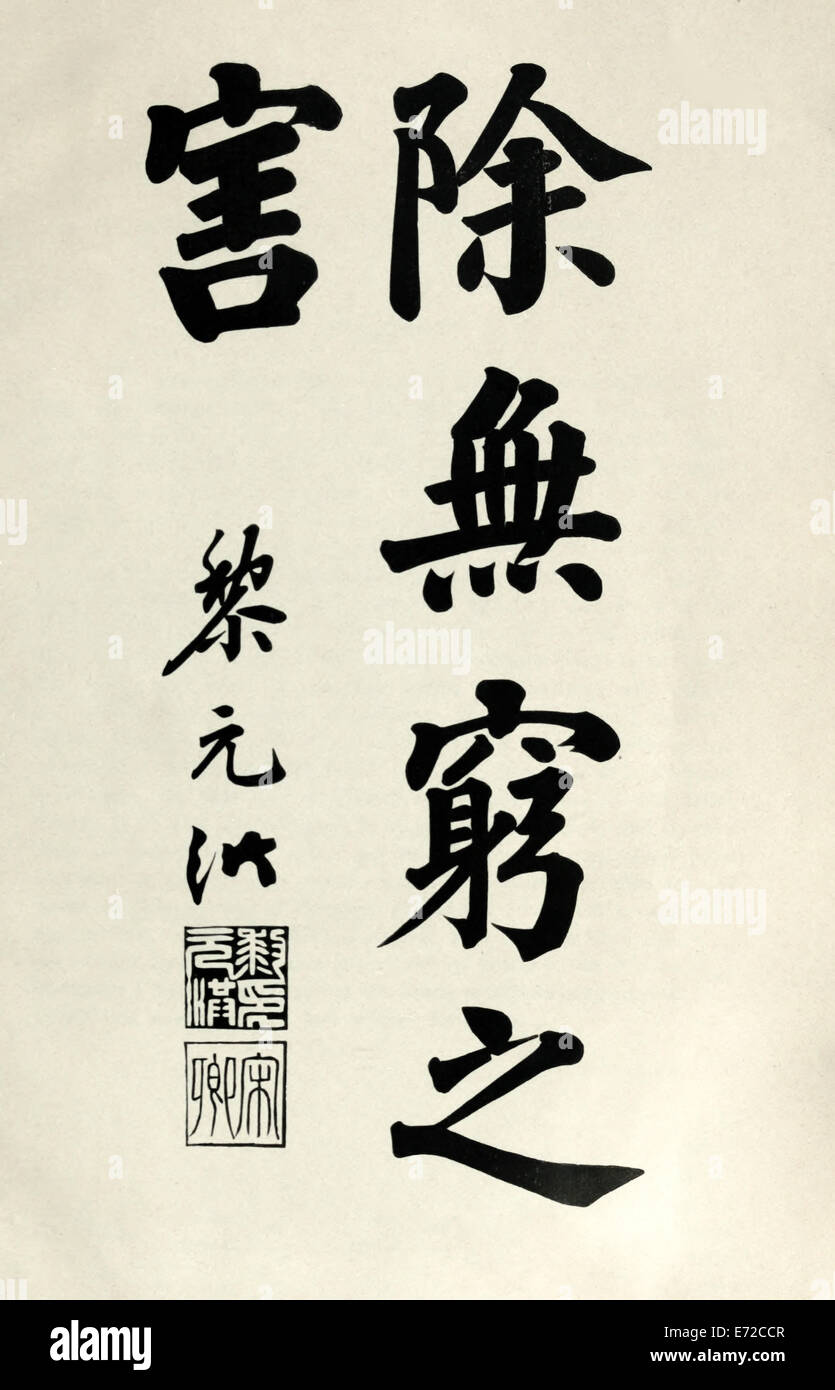 除無窮之
害
黎元洪
黎元洪印
宋卿
alamy
a
alamy stock photo
E72CCR
www.alamy.com